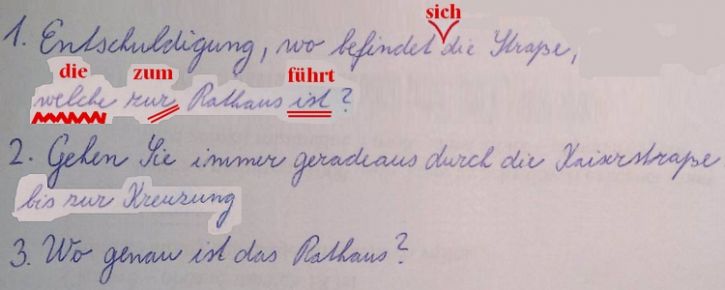 sich
1. Entschuldigung, wo befindet die Straße,
die zum führt
welche zur Rathaus ist?
2. Gehen Sie immer geradeaus durch die Kaiserstraße
bis zur Kreuzung
3. Wo genau ist das Rathaus?